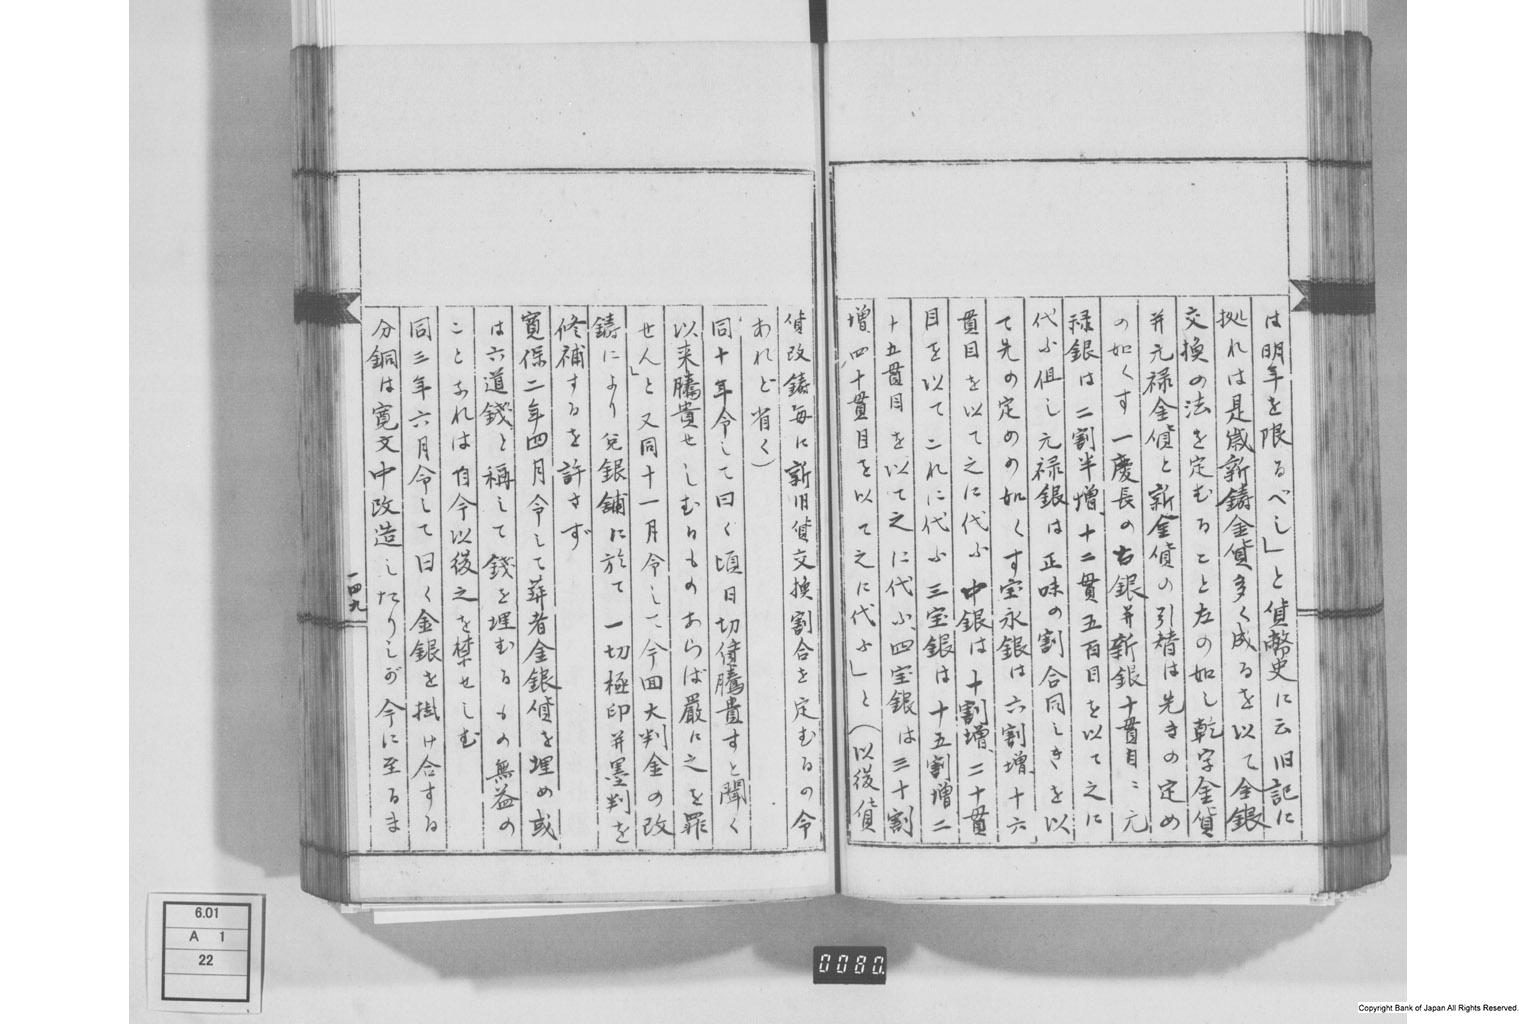 は明年を限るべし」と貨幣史に云旧記に
拠れは是歳新鋳金貨多く成るを以て金銀
交換の法を定むること左の如し乾字金貨
并元禄金貨と新金貨の引替は先きの定め
の如くす一慶長の古銀并新銀十貫目ニ元
禄銀は二割半増、十二貫五百目を以て之に
代ふ但し元禄銀は正味の割合同しきを以
て先の定めの如くす宝永銀は六割増、十六
貫目を以て之に代ふ中銀は十割増、二十貫
目を以てこれに代ふ三宝銀は十五割増二
十五貫目を以て之に代ふ、四宝銀は三十割
増、四十貫目を以て之に代ふ」と（以後貨
貨改鋳毎に新旧貨交換割合を定むるの令
あれど省く）
同十年令して曰く頃日切賃騰貴すと聞く
以来騰貴せしむるものあらば厳に之を罪
せん」と又同十一月令して今回大判金の改
鋳により兌銀舗に於て一切極印并墨判を
修補するを許さず
寛保二年四月令して葬者金銀貨を埋め或
は六道錢と稱して錢を埋むるもの無益の
ことなれは自今以後之を禁せしむ
同三年六月令して曰く金銀を掛け合する
分銅は寛文中改造したりしが今に至るま
一四九
6.01
A 1
22
0080
Copyright Bank of Japan All Rights Reserved.